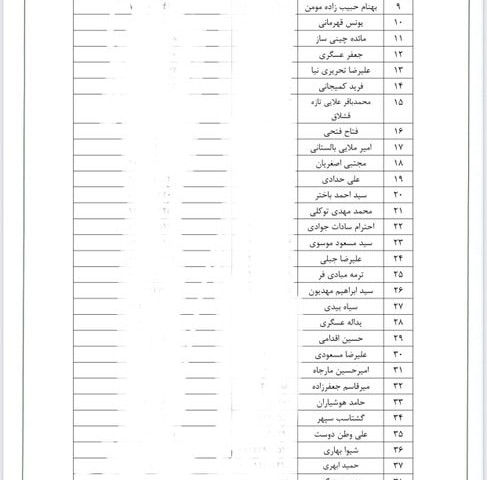 ۹ بهنام حبیب زاده مومن
۱۰ یونس قهرمانی
۱۱ مائده چینی ساز
۱۲ جعفر عسگری
۱۳ علیرضا تحریری نیا
۱۴ فرید کمیجانی
۱۵ محمدباقر علایی تازه
قشلاق
۱۶ فتاح فتحی
۱۷ امیر ملایی بالستانی
۱۸ مجتبی اصغریان
۱۹ علی حدادی
۲۰ سید احمد باختر
۲۱ محمد مهدی توکلی
۲۲ احترام سادات جوادی
۲۳ سید مسعود موسوی
۲۴ علیرضا جبلی
۲۵ ترمه مبادی فر
۲۶ سید ابراهیم مهدیون
۲۷ سپاه بیدی
۲۸ یداله عسگری
۲۹ حسین اقدامی
۳۰ علیرضا مسعودی
۳۱ امیرحسین مارجاه
۳۲ میرقاسم جعفرزاده
۳۳ حامد هوشیاران
۳۴ گشتاسب سپهر
۳۵ علی وطن دوست
۳۶ شیوا بهاری
۳۷ حمید ابهری